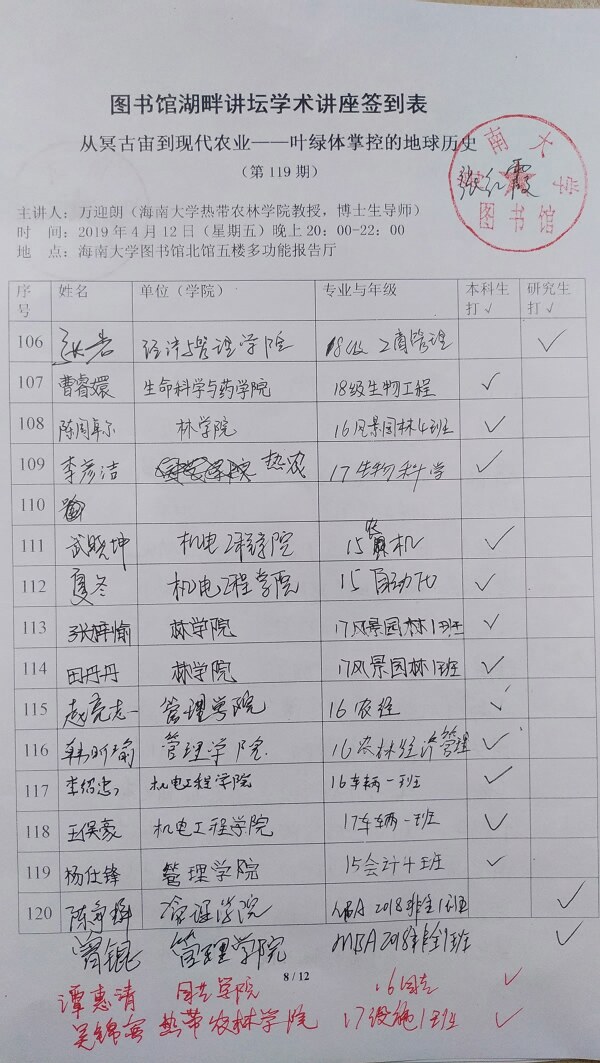 图书馆湖畔讲坛学术讲座签到表
从冥古宙到现代农业——叶绿体掌控的地球历史
（第 119 期）
南大学
图书馆
张红霞
主讲人：万迎朗（海南大学热带农林学院教授，博士生导师）
时 间：2019 年 4 月 12 日（星期五）晚上 20：00-22：00
地 点：海南大学图书馆北馆五楼多功能报告厅
序号 姓名 单位（学院） 专业与年级 本科生打√ 研究生打√
106 经济与管理学院 18级工商管理 ✓
107 曹睿嬛 生命科学与药学院 18级生物工程 ✓
108 陈周卓尔 林学院 16风景园林4班 ✓
109 李彦洁 热农 17生物科学 ✓
110
111 武晓坤 机电工程学院 15农机 ✓
112 夏冬 机电工程学院 15自动化 ✓
113 张梓愉 林学院 17风景园林1班 ✓
114 田丹丹 林学院 17风景园林1班 ✓
115 赵亮志 管理学院 16农经 ✓
116 韩昕瑜 管理学院 16农林经济管理 ✓
117 李绍忠 机电工程学院 16车辆一班 ✓
118 王俣豪 机电工程学院 17车辆一班 ✓
119 杨仕锋 管理学院 15会计十班 ✓
120 管理学院 MBA 2018非全1班 ✓
曾锟 管理学院 MBA2018非全1班 ✓
8 / 12
谭惠清 园艺学院 16园艺 ✓
吴锦 热带农林学院 17设施1班 ✓